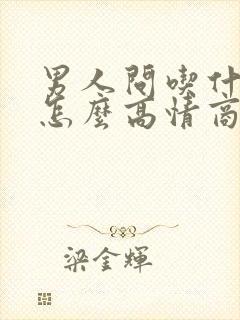 男人問喫什
怎麼高情商
梁金輝